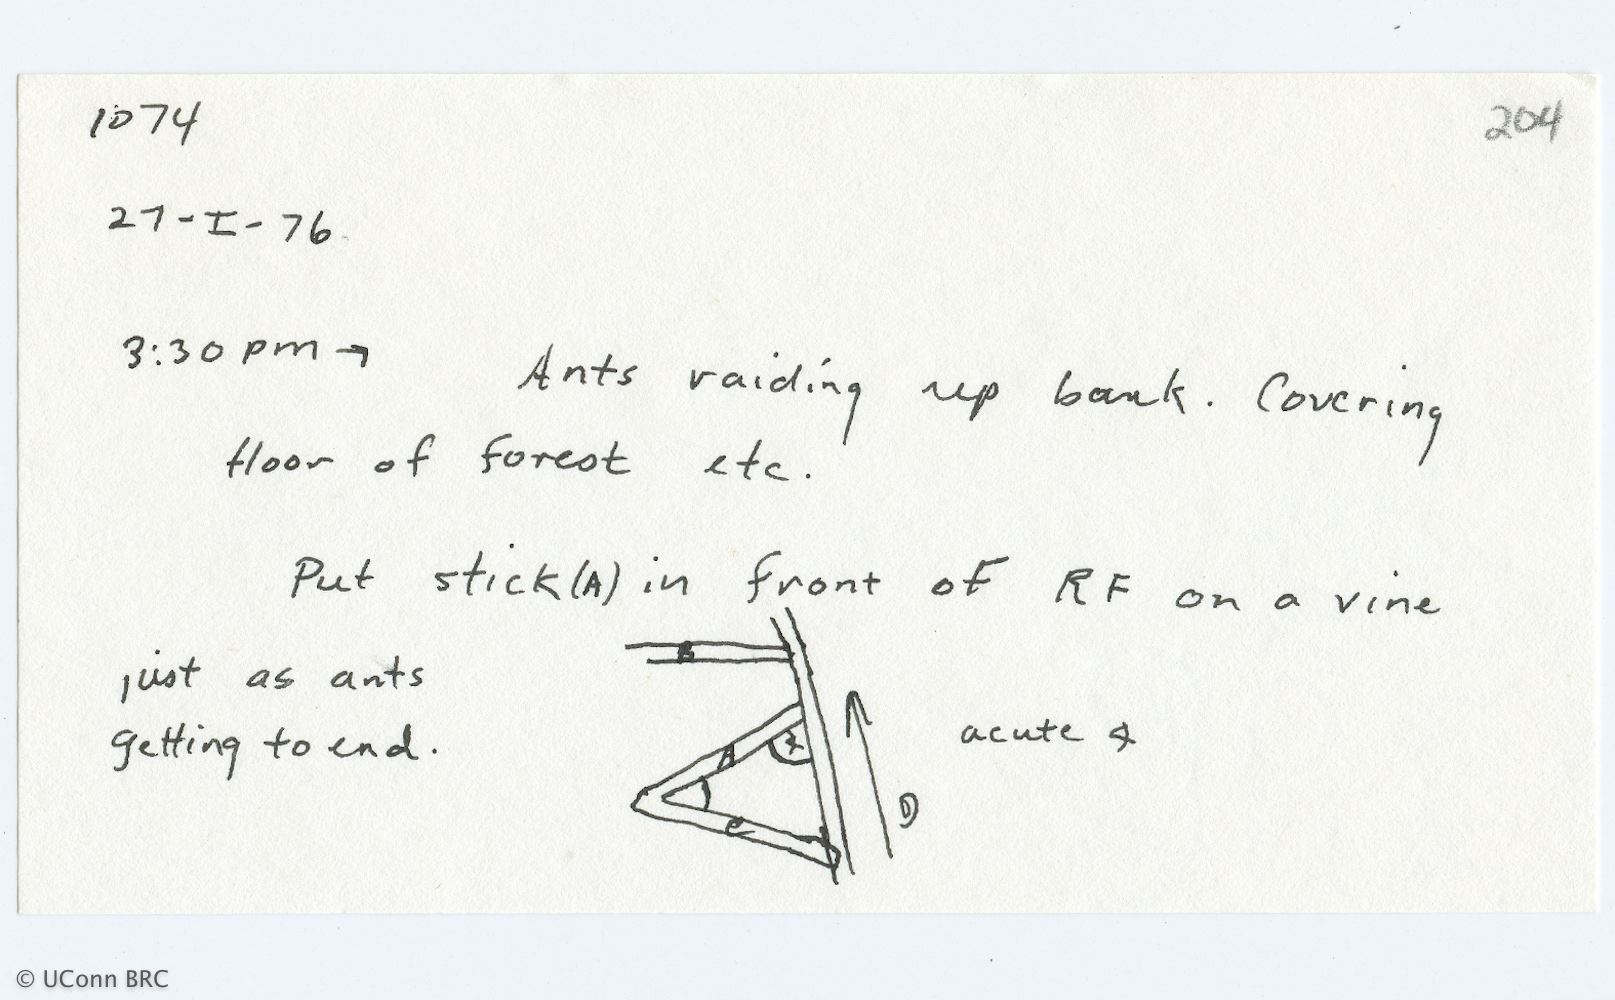 1074
204
27-I-76
3:30 pm →
Ants raiding up bank. Covering
floor of forest etc.
Put stick (A) in front of RF on a vine
just as ants
getting to end.
B
A
∡
C
D
acute ∡
© UConn BRC